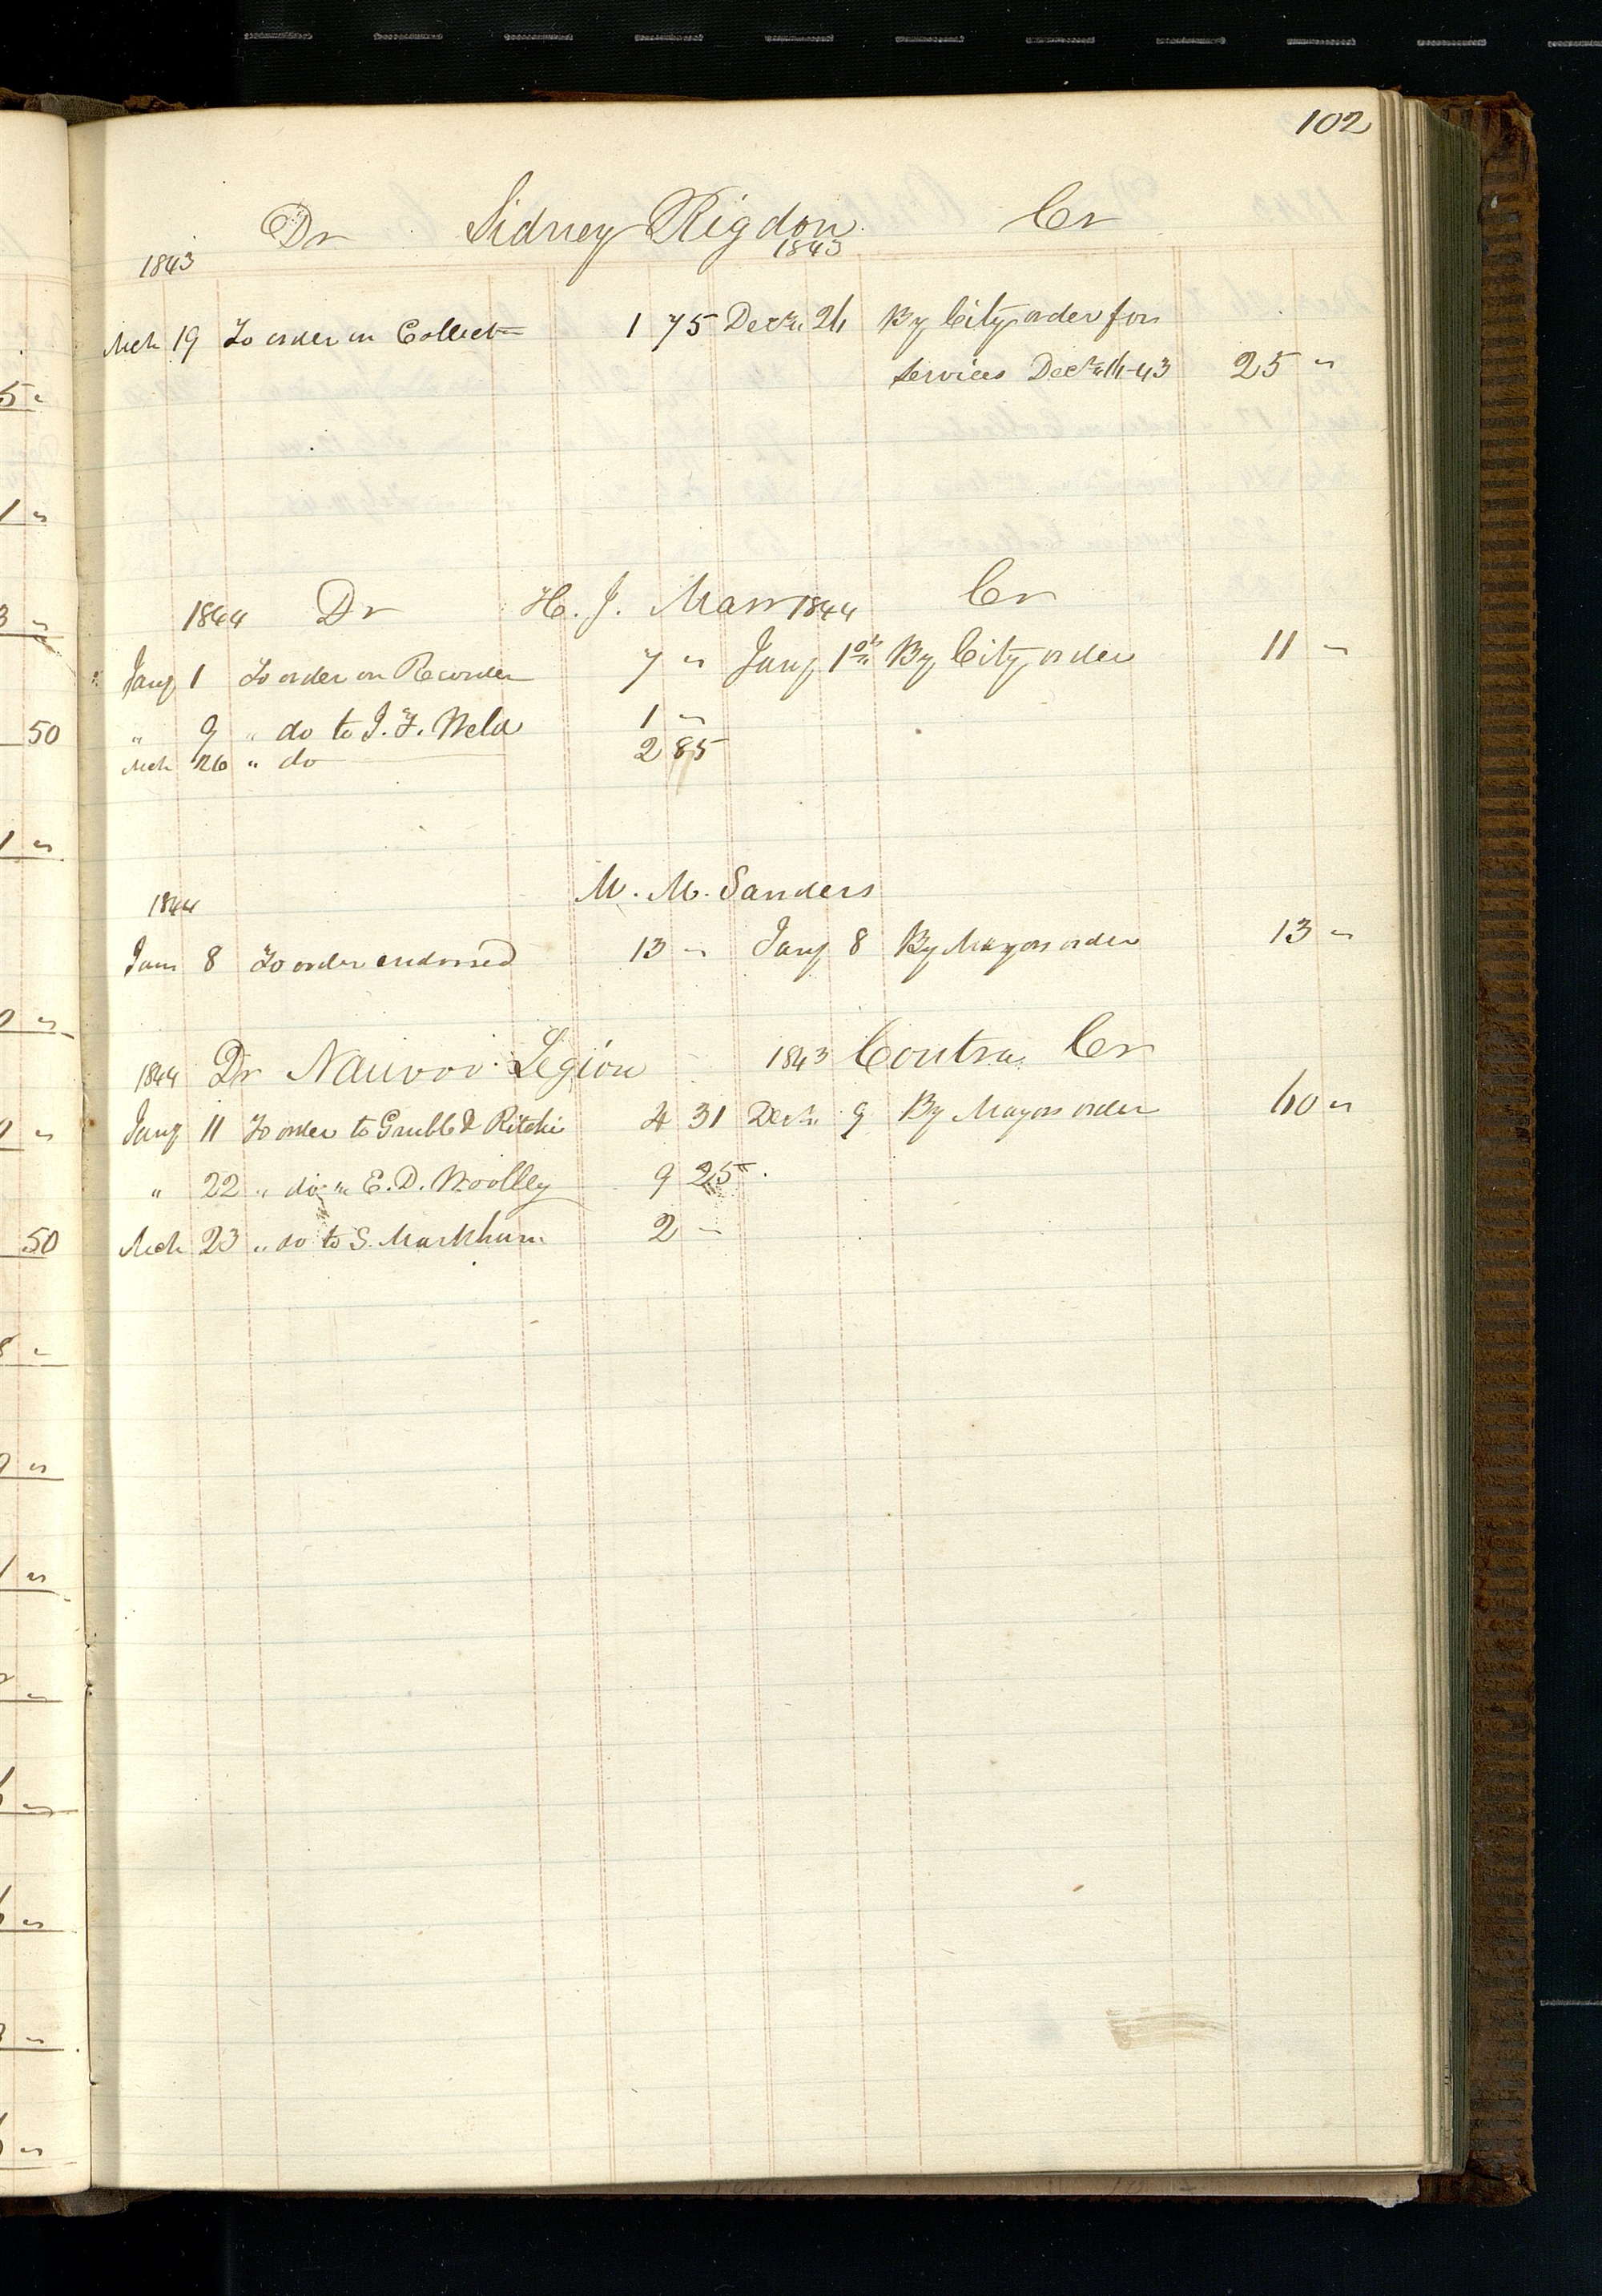 102
Dr Sidney Rigdon Cr
1843 1843
Mch 19 To order on Collector 1 75 Decr. 26 By City order for
Services Decr. 16-43 25 "
1844 Dr H. J. Marr 1844 Cr
Jany 1 To order on Recorder 7 " Jany 1st By City order 11 "
" 9 " do to J. F. Weld 1 "
Mch 26 " do 2 85
M. M. Sanders
1844
Jany 8 To order endorsed 13 " Jany 8 By Mayors order 13 "
1844 Dr Nauvoo Legion 1843 Contra Cr
Jany 11 To order to Grubb & Ritchie 4 31 Decr. 9 By Mayors order 60 "
" 22 " do " E. D. Woolley 9 25
Mch 23 " do to S. Markham 2 "
5 "
1 "
3 "
50
1 "
0 "
50
8 "